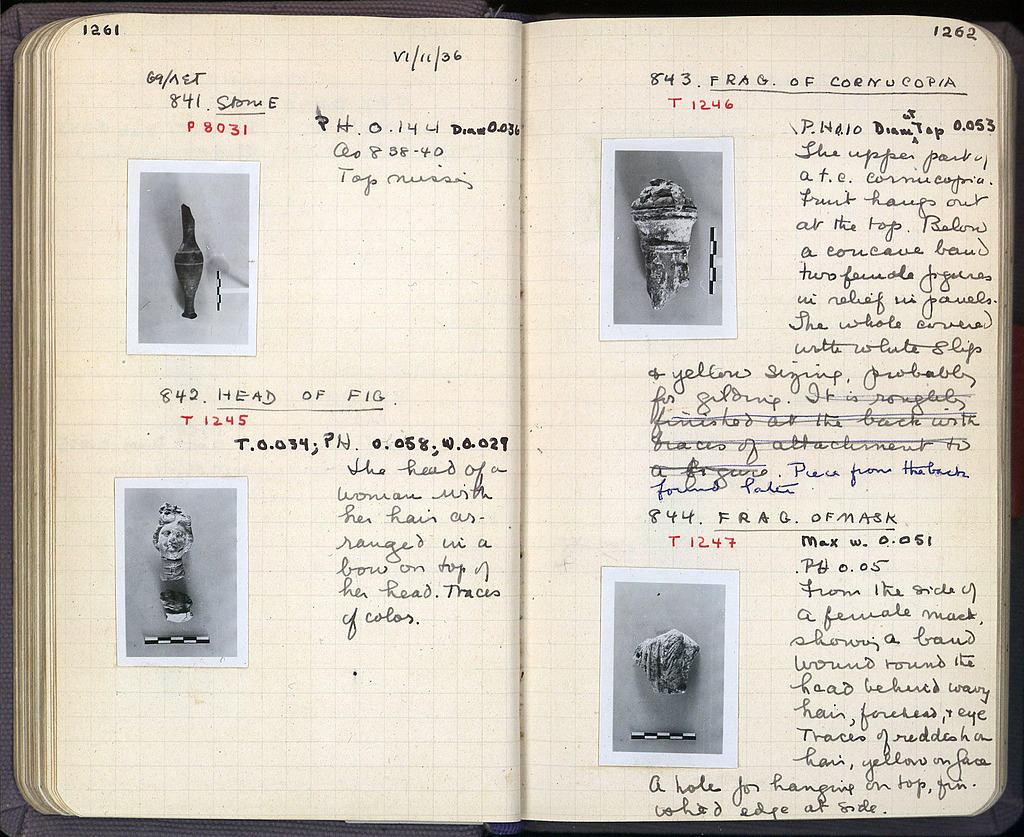 1261
VI/11/36
841.
P 8031
P H. 0.144 Diam 0.036
838-40
Top missing
842. HEAD OF FIG.
T 1245
T. 0.034; PH. 0.058; W. 0.029
The head of a
woman with
her hair ar-
ranged in a
bow on top of
her head. Traces
of color.
1262
843. FRAG. OF CORNUCOPIA
T 1246
P.H. 0.10 Diam at Top 0.053
The upper part of
a t.c. cornucopia.
Fruit hangs out
at the top. Below
a concave band
two female figures
in relief in panels.
The whole covered
with white slip
& yellow sizing, probably
for gilding. It is roughly
finished at the back with
traces of attachment to
a figure. Piece from the back
found later
844. FRAG. OF MASK
T 1247
Max W. 0.051
PH 0.05
From the side of
a female mask,
showing a band
wound round the
head behind wavy
hair, forehead, & eye
Traces of reddish on
hair, yellow on face
A hole for hanging on top, fin-
ished edge at side.